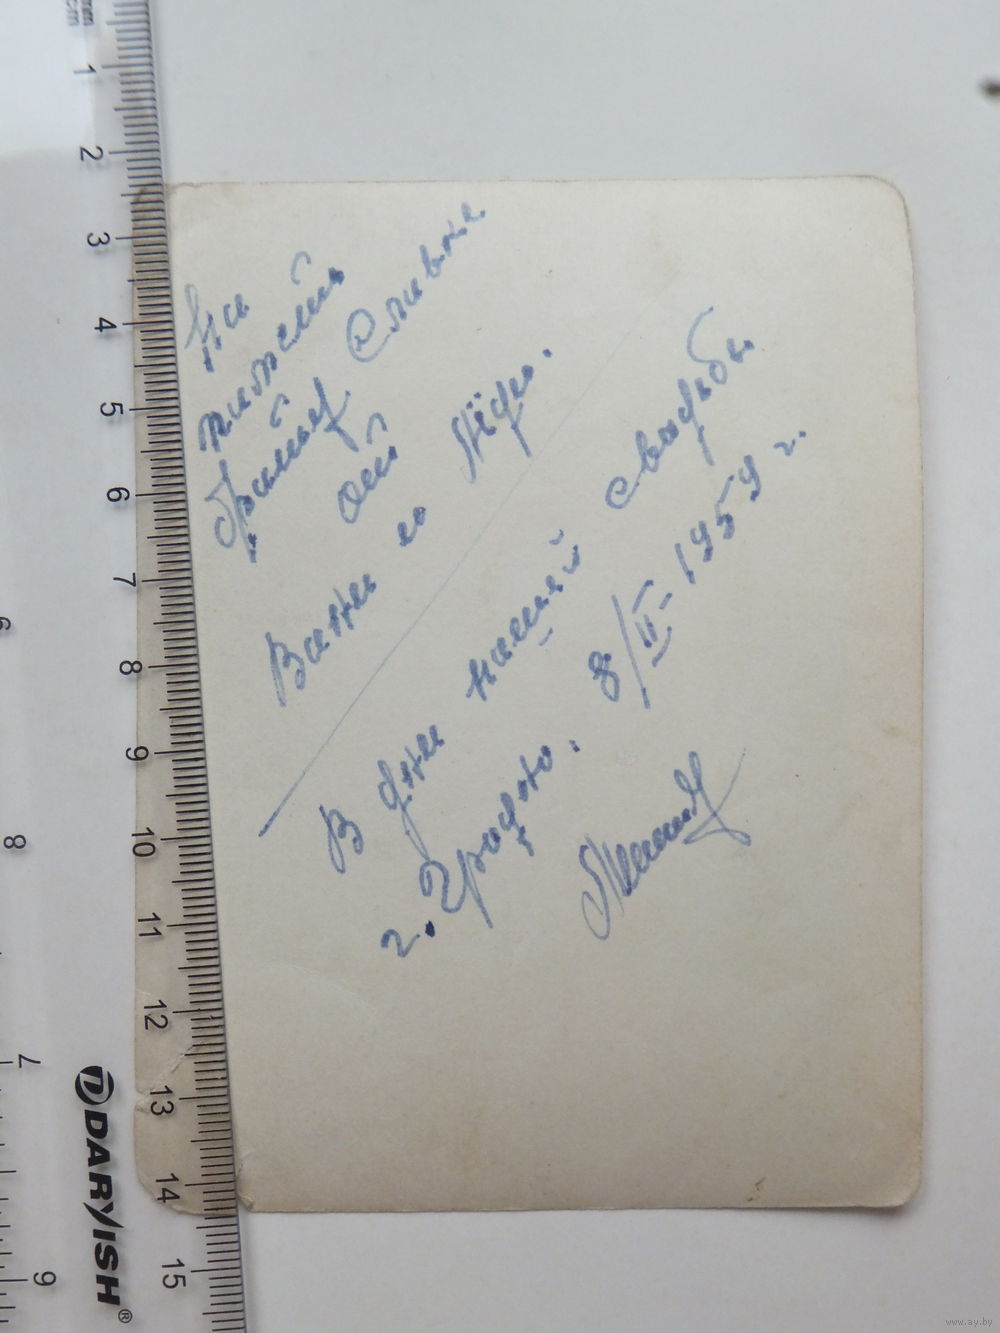 На
память
Славке
от
Вани и
В дни нашей свадьбы
г. Гродно. 8/II-1959 г.
1
2
3
4
5
6
7
8
9
10
11
12
13
14
15
6
8
7
9
DARVISH®
www.ay.by